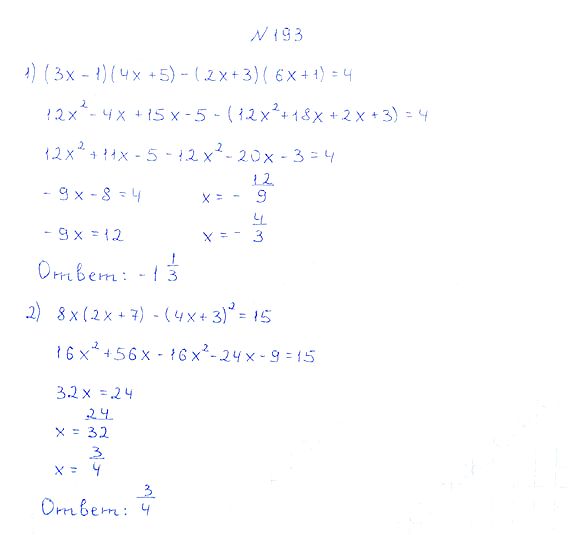 N 193
1) (3x - 1)(4x + 5) - (2x + 3)(6x + 1) = 4
12x² - 4x + 15x - 5 - (12x² + 18x + 2x + 3) = 4
12x² + 11x - 5 - 12x² - 20x - 3 = 4
- 9x - 8 = 4 x = - 12/9
- 9x = 12 x = - 4/3
Ответ: - 1 1/3
2) 8x(2x + 7) - (4x + 3)² = 15
16x² + 56x - 16x² - 24x - 9 = 15
32x = 24
x = 24/32
x = 3/4
Ответ: 3/4